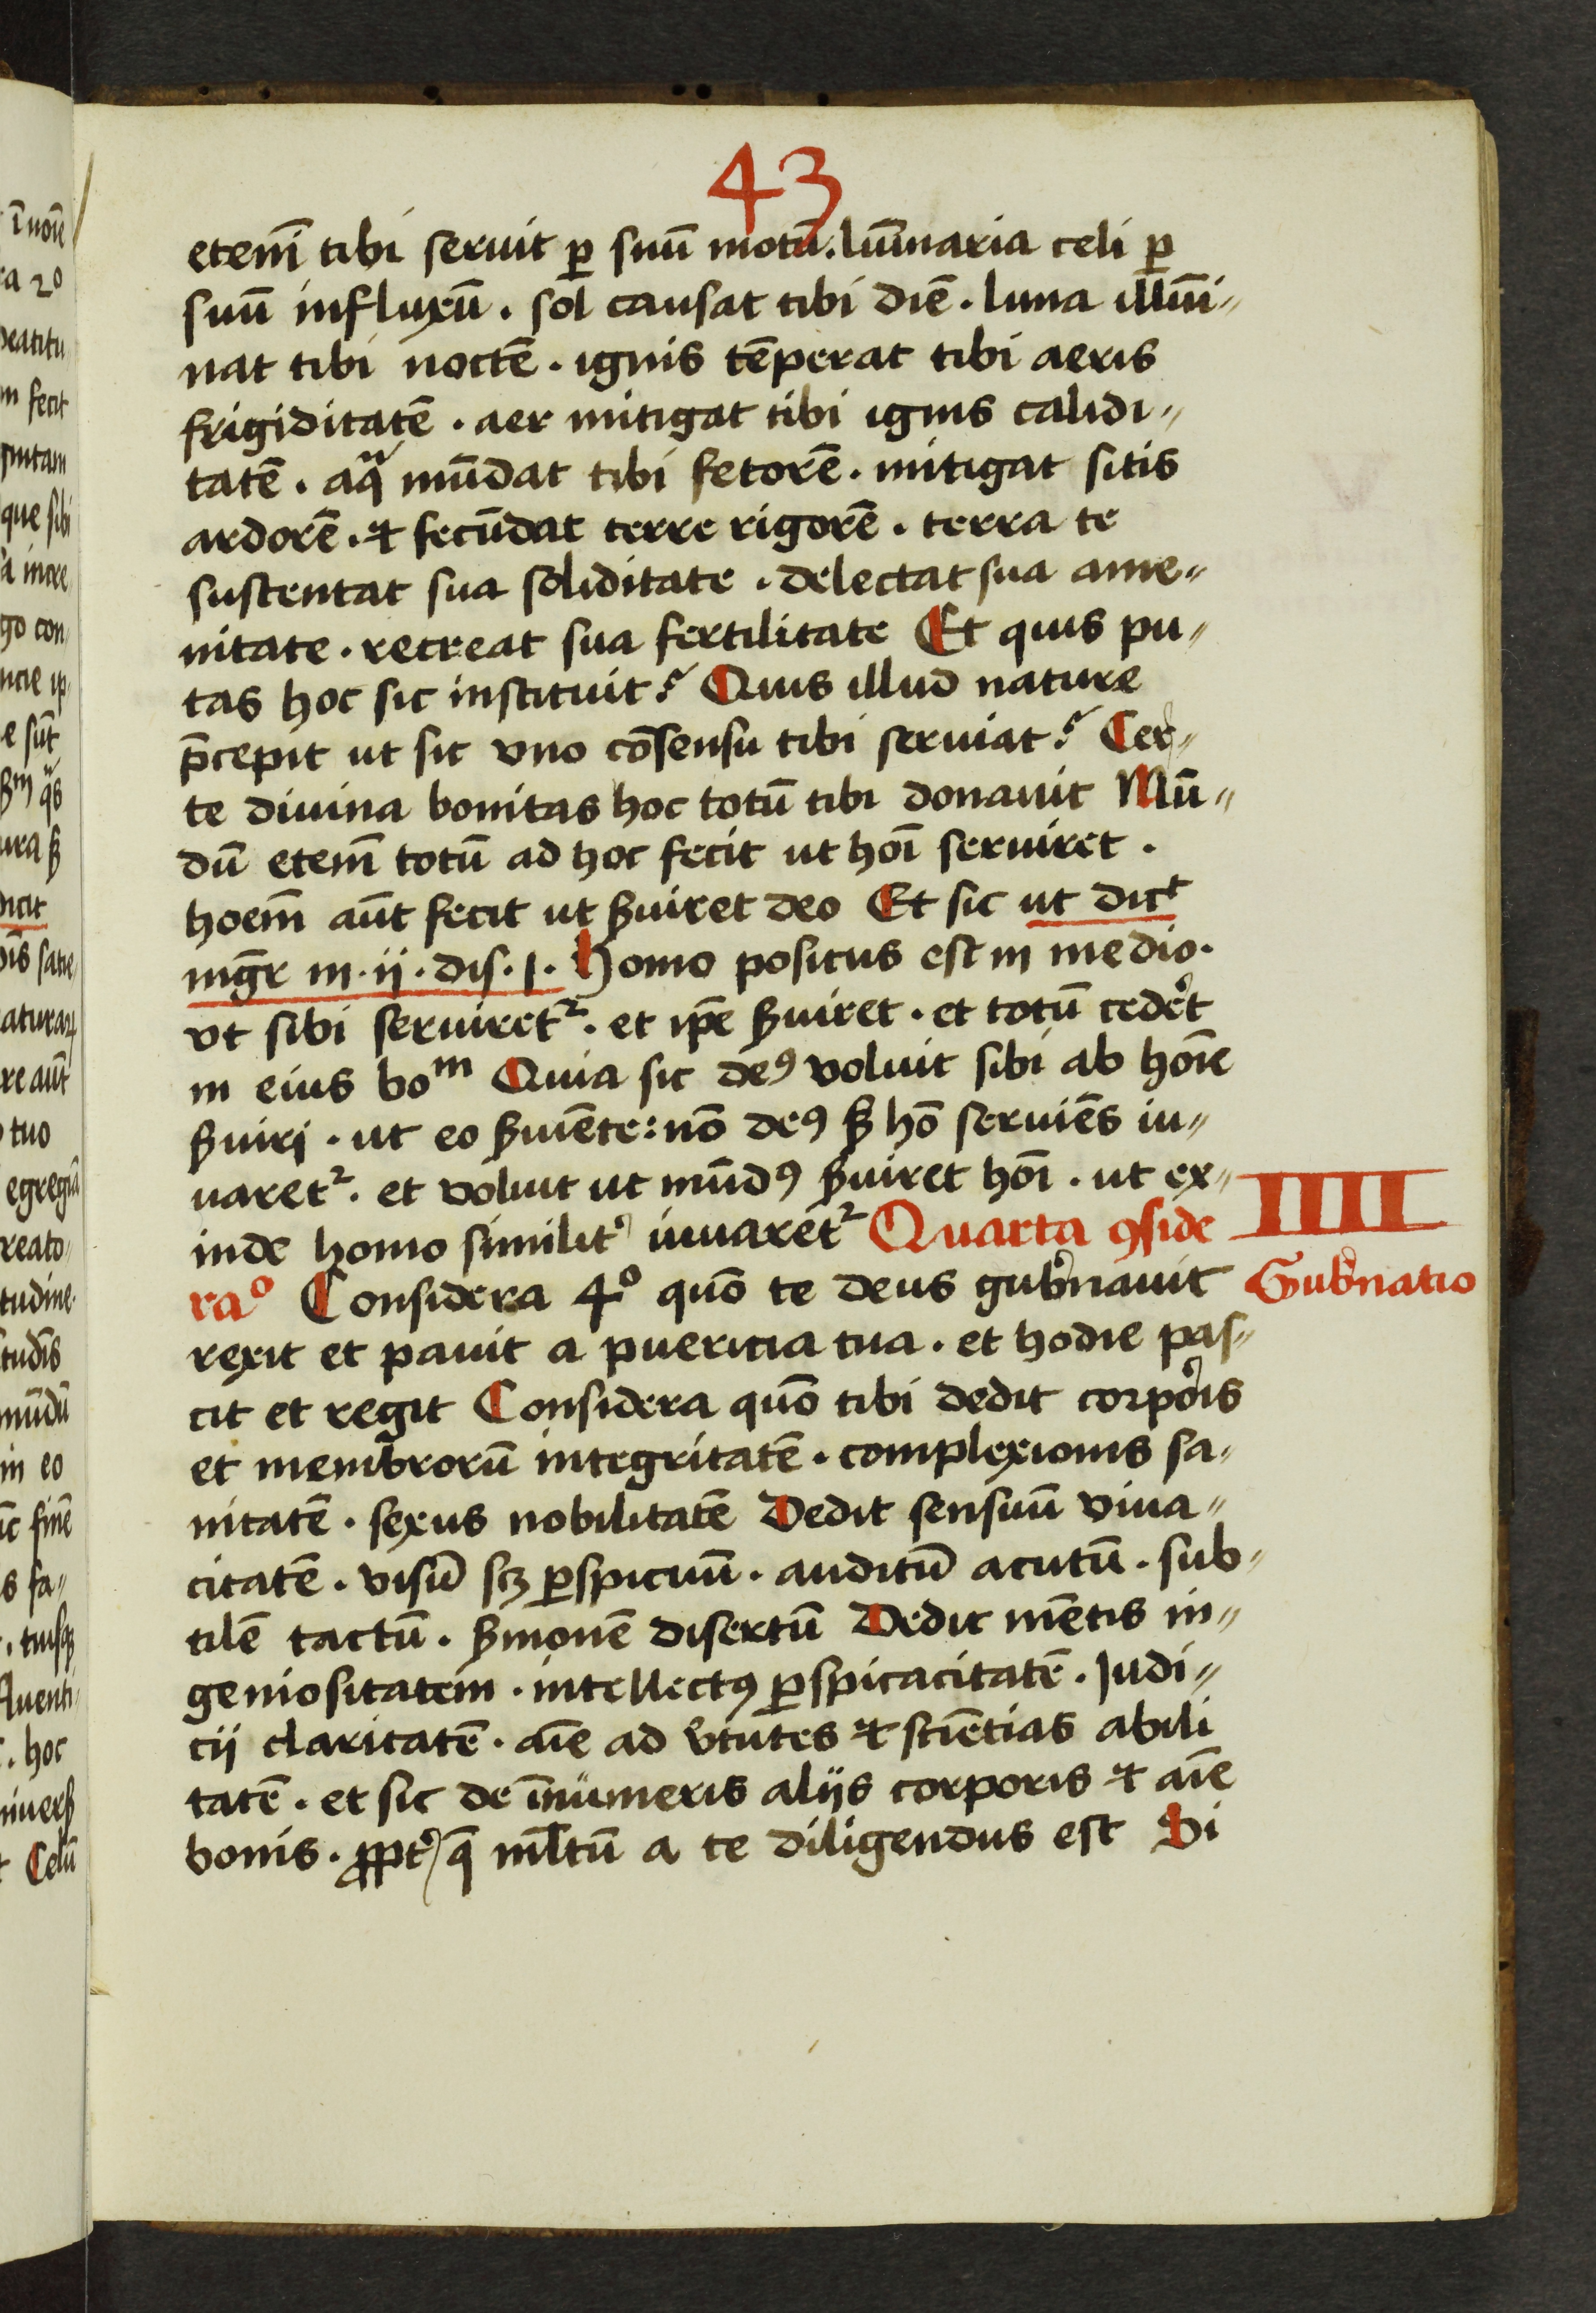 43
etenī tibi seruit ꝑ suū motū. lūinaria celi ꝑ
suū influxū. sol causat tibi diē. luna illūi„
nat tibi noctē. ignis tēperat tibi aeris
frigiditatē. aer mitigat tibi ignis calidi„
tatē. aqᷓ mūdat tibi fetorē. mitigat sitis
ardorē. ⁊ fecūdat terre rigorē. terra te
sustentat sua soliditate. delectat sua ame„
nitate. recreat sua fertilitate Et quis pu„
tas hoc sic instituit? Quis illud nature
p̄cepit ut sit vno cōsensu tibi seruiat? Cer„
te diuina bonitas hoc totū tibi donauit Mū„
dū etenī totū ad hoc fecit ut hoī seruiret.
hoem̄ aūt fecit ut ẜuiret deo Et sic ut dicᵗ
mgr̄ in. ii. dis. 1. Homo positus est in medio.
vt sibi seruiretᷣ. et ip̄e ẜuiret. et totū cedēt
in eius boᵐ Quia sic deꝰ voluit sibi ab hoīe
ẜuiri. ut eo ẜuiēte: nō deꝰ ẜ hō seruiēs iu„
uaretᷣ. et voluit ut mūdꝰ ẜuiret hoī. ut ex„
inde homo similit᾽ iuuaretᷣ Quarta ꝯside
raº Considera 4º quō te deus gub᾽nauit
IIII
Gub᾽natio
rexit et pauit a puericia tua. et hodie pas„
cit et regit Considera quō tibi dedit corp᾽ois
et membrorū integritatē. complexionis sa„
nitatē. sexus nobilitatē Dedit sensuū viua„
citatē. visū scꝫ ꝑspicuū. auditū acutū. sub„
tilē tactū. ẜmonē disertū Dedit mētis in„
geniositatem. intellectꝰ ꝑspicacitatē. Judi„
cij claritatē. aīe ad v᾽tutes ⁊ sciētias abili
tatē. et sic de īnumeris alijs corporis ⁊ aīe
bonis. ꝓpt᾽ qͥ ml̄tū a te diligendus est Si